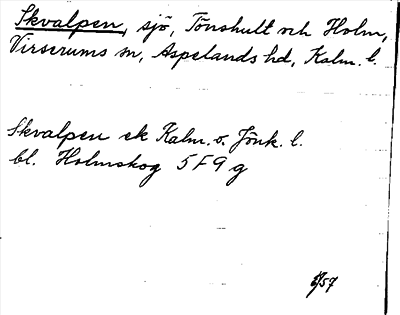 Skvalpen, sjö, Tönshult och Holm,
Virserums sn, Aspelands hd, Kalm. l.
Skvalpen ek Kalm. o. Jönk. l.
bl. Holmskog 5F9g